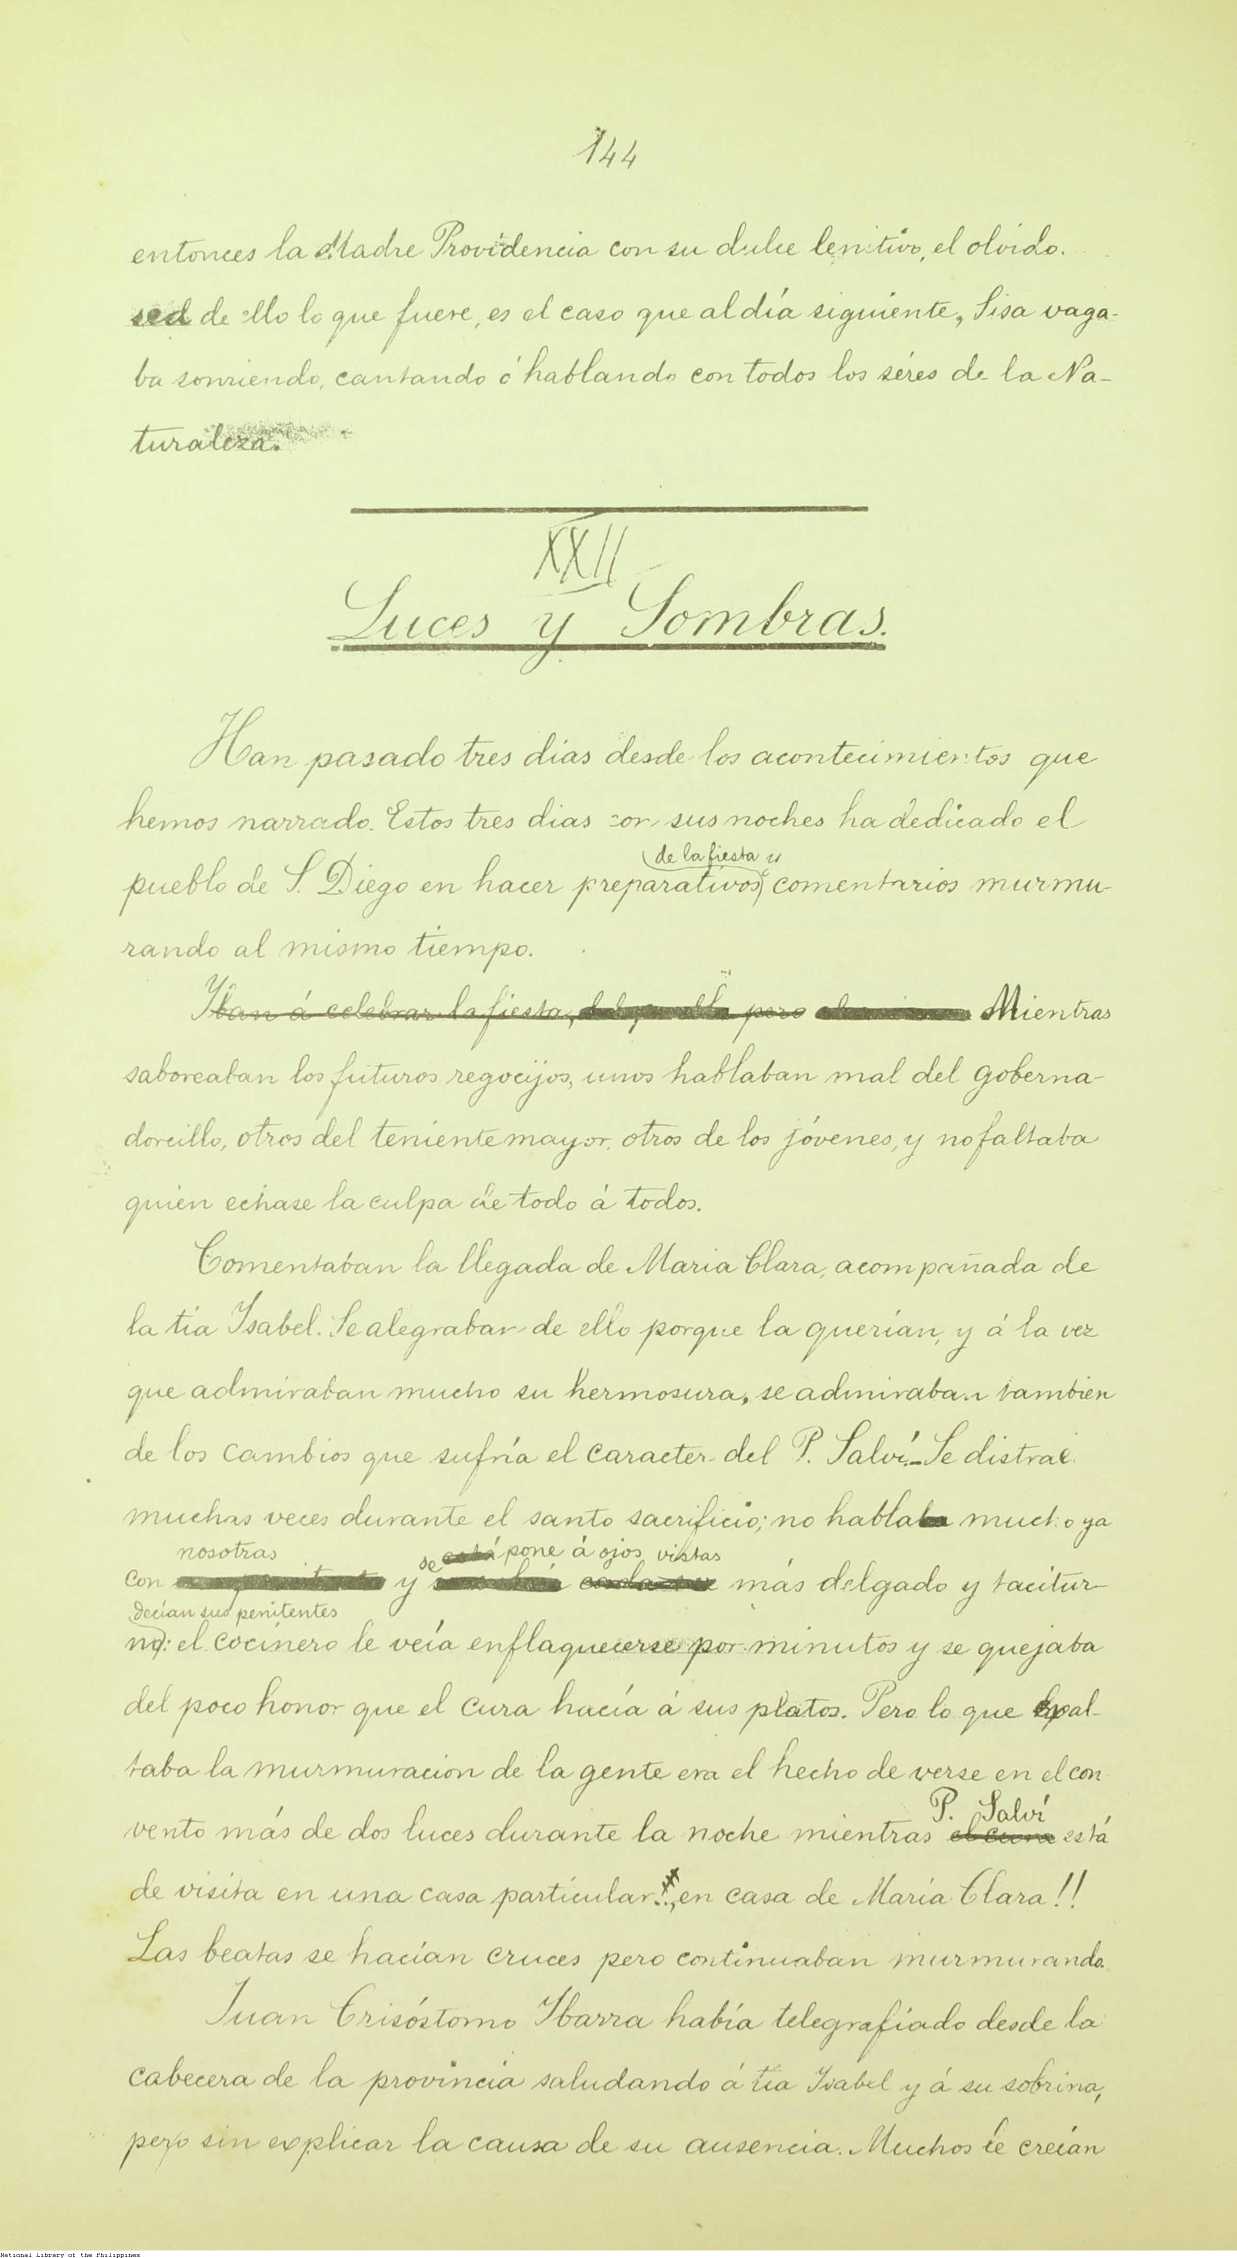 144
entonces la Madre Providencia con su dulce lenitivo, el olvido.
sea de ello lo que fuere, es el caso que al día siguiente, Sisa vaga-
ba sonriendo, cantando ó hablando con todos los séres de la Na-
turaleza.
XXII
Luces y Sombras.
Han pasado tres dias desde los acontecimientos que
hemos narrado. Estos tres dias con sus noches ha dedicado el
de la fiesta y
pueblo de S. Diego en hacer preparativos, comentarios murmu-
rando al mismo tiempo.
Iban á celebrar la fiesta, pero Mientras
saboreaban los futuros regocijos, unos hablaban mal del goberna-
dorcillo, otros del teniente mayor, otros de los jóvenes, y no faltaba
quien echase la culpa de todo á todos.
Comentaban la llegada de Maria Clara, acompañada de
la tia Isabel. Se alegraban de ello porque la querian, y á la vez
que admiraban mucho su hermosura, se admiraban tambien
de los cambios que sufría el caracter del P. Salví.— Se distrae
muchas veces durante el santo sacrificio; no habla mucho ya
nosotras se está pone á ojos vistas
con y más delgado y tacitur-
decían sus penitentes
no: el cocinero le veía enflaquecerse por minutos y se quejaba
del poco honor que el cura hacía á sus platos. Pero lo que exal-
taba la murmuracion de la gente era el hecho de verse en el con
P. Salví
vento más de dos luces durante la noche mientras el cura está
de visita en una casa particular!.., en casa de María Clara!!
Las beatas se hacían cruces pero continuaban murmurando.
Juan Crisóstomo Ibarra había telegrafiado desde la
cabecera de la provincia saludando á tia Isabel y á su sobrina,
pero sin explicar la causa de su ausencia. Muchos le creían
National Library of the Philippines